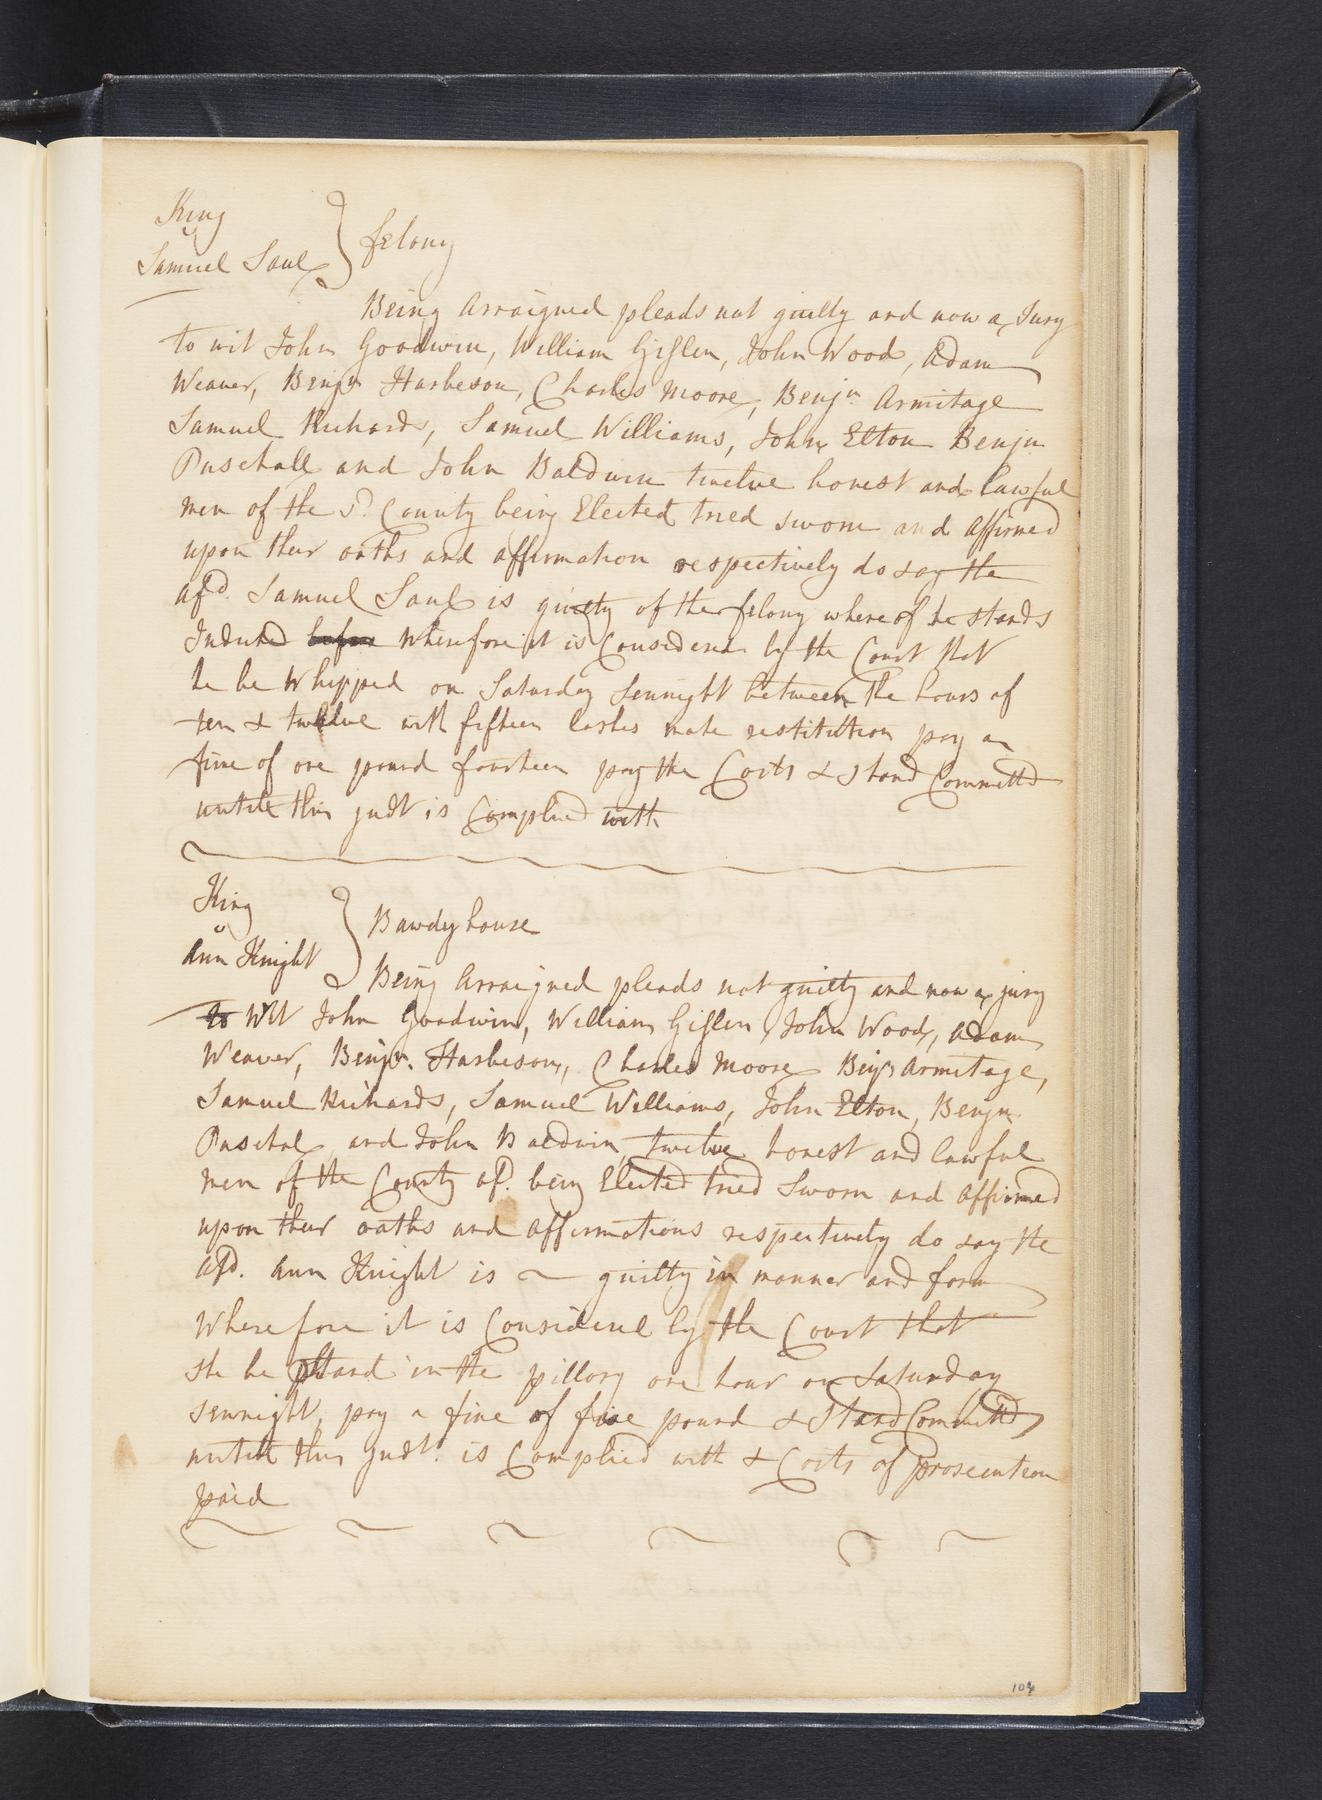 King
v
Samuel Saul } felony
Being Arraigned pleads not guilty and now a Jury
to wit John Goodwin, William Giflen, John Wood, Adam
Weaver, Benjn Harbeson, Charles Moore, Benjn Armitage
Samuel Richards, Samuel Williams, John Elton Benjn
Paschall and John Baldwin twelve honest and lawful
men of the sd. County being Elected tried sworn and affirmed
upon their oaths and affirmation respectively do say the
afd. Samuel Saul is guilty of the felony where of he stands
Indicted before Wherefore it is Considered by the Court that
he be Whipped on Saturday Sennight between the hours of
ten & twelve with fifteen lashes make restitution pay a
fine of one pound fourteen pay the Costs & stand Committd
untill this judt is Complied with
King
v
Ann Knight } Bawdy house
Being Arraigned pleads not guilty and now a jury
to Wit John Goodwin, William Giflen, John Wood, Adam
Weaver, Benjn. Harbeson, Charles Moore Benjn Armitage,
Samuel Richards, Samuel Williams, John Elton, Benjn
Paschal, and John Baldwin, twelve honest and lawful
men of the County afd. being Elected tried Sworn and affirmed
upon their oaths and affirmations respectively do say the
afd. Ann Knight is guilty in manner and form
Wherefore it is Considered by the Court that
she be stand in the pillory one hour on Saturday
sennight, pay a fine of five pound & stand Committd
untill this judt. is Complied with & Costs of prosecution
paid
104